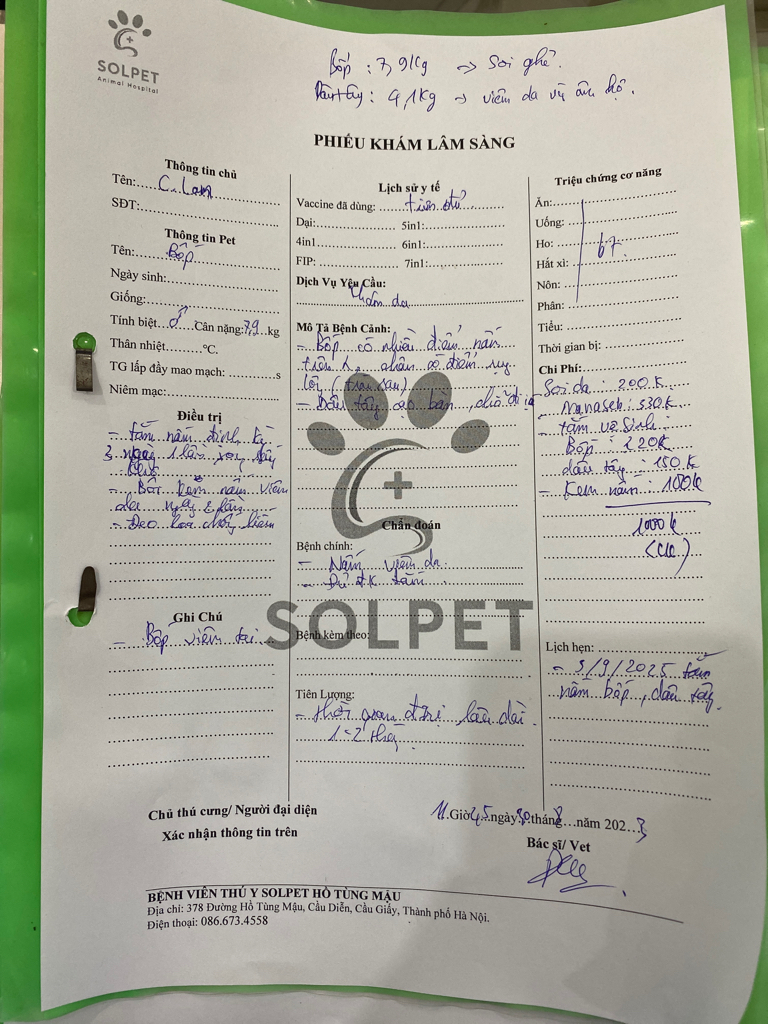 SOLPET
Animal Hospital
Bốp : 7,9kg → Soi ghẻ.
Dâu tây : 4,1kg → viêm da
PHIẾU KHÁM LÂM SÀNG
Thông tin chủ
Tên: C. Lan
SĐT:
Thông tin Pet
Tên: Bốp
Ngày sinh:
Giống:
Tính biệt ♂ Cân nặng: 7,9 kg
Thân nhiệt °C.
TG lấp đầy mao mạch: s
Niêm mạc:
Điều trị
- Tắm nấm định kỳ
3 ngày 1 lần
- Bôi kem nấm viêm
da ngày 2 lần
- Đeo loa chống liếm
Ghi Chú
- Bốp viêm tai
Lịch sử y tế
Vaccine đã dùng: tiêm đủ
Dại: 5in1:
4in1 6in1:
FIP: 7in1:
Dịch Vụ Yêu Cầu:
Khám da
Mô Tả Bệnh Cảnh:
- Bốp có nhiều điểm nấm
trên chân có điểm rụng
lông
- Dâu tây
Chẩn đoán
Bệnh chính:
- Nấm viêm da
- Đủ đk tắm
SOLPET
Bệnh kèm theo:
Tiên Lượng:
- thời gian đ trị lâu dài
1-2 tháng
Triệu chứng cơ năng
Ăn:
Uống:
Ho:
Hắt xì: bt
Nôn:
Phân:
Tiểu:
Thời gian bị:
Chi Phí:
Soi da : 200k
- 330k
- tắm vệ sinh
Bốp : 220k
dâu tây : 150k
- Kem nấm : 100k
1000k
(ck)
Lịch hẹn:
- 3/9/2025 tắm
nấm bốp, dâu tây
11 Giờ 45 ngày 30 tháng 8 năm 202
Chủ thú cưng/ Người đại diện
Xác nhận thông tin trên
Bác sĩ/ Vet
BỆNH VIỆN THÚ Y SOLPET HỒ TÙNG MẬU
Địa chỉ: 378 Đường Hồ Tùng Mậu, Cầu Diễn, Cầu Giấy, Thành phố Hà Nội.
Điện thoại: 086.673.4558